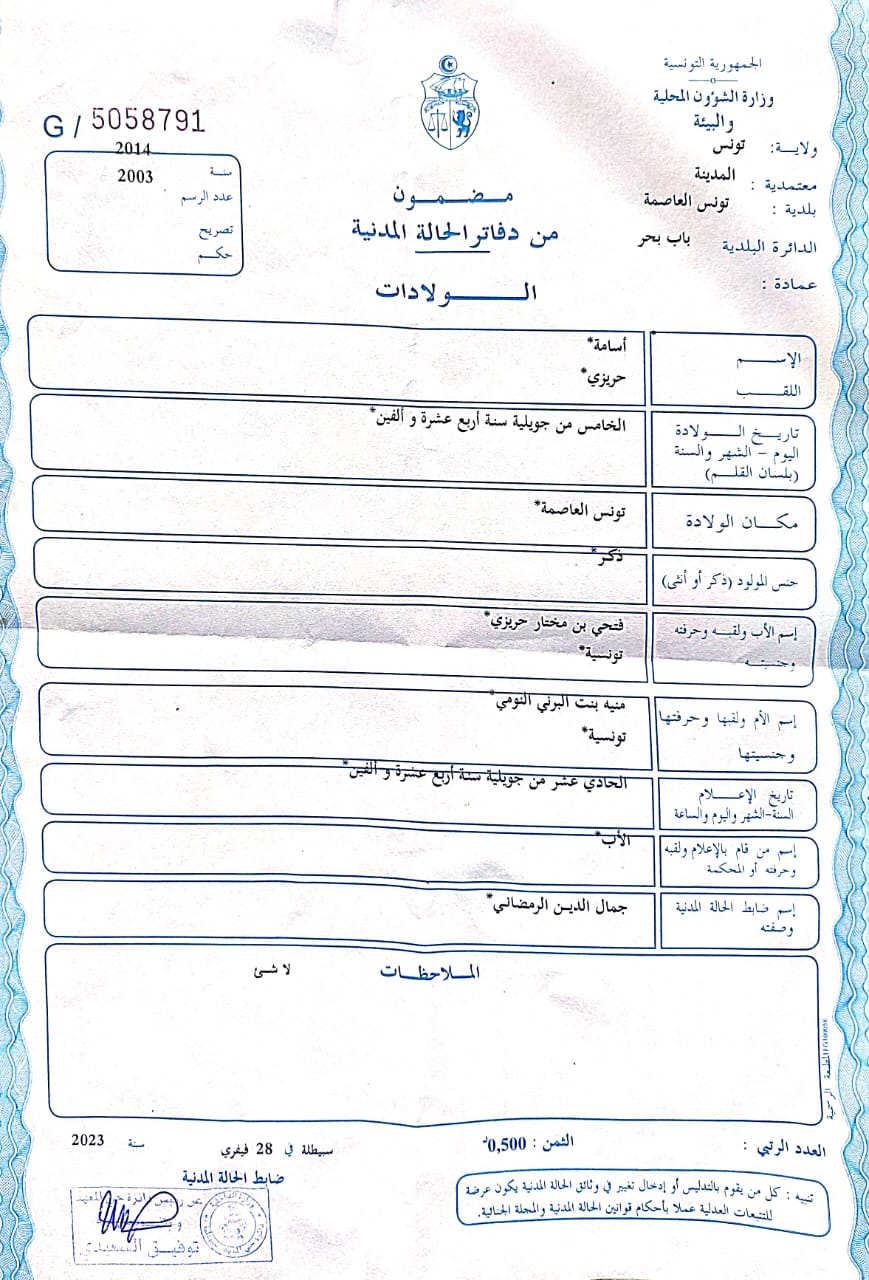 الجمهورية التونسية
وزارة الشؤون المحلية
والبيئة
ولاية: تونس
معتمدية : المدينة
بلدية : تونس العاصمة
الدائرة البلدية باب بحر
عمادة :
G / 5058791
2014
سنة 2003
عدد الرسم
تصريح
حكم
مضمون
من دفاتر الحالة المدنية
الولادات
الإسم أسامة*
اللقب حريزي*
تاريخ الولادة الخامس من جويلية سنة أربع عشرة و ألفين*
اليوم - الشهر والسنة
(بلسان القلم)
مكان الولادة تونس العاصمة*
جنس المولود (ذكر أو أنثى) ذكر*
إسم الأب ولقبه وحرفته فتحي بن مختار حريزي*
وجنسيته تونسية*
إسم الأم ولقبها وحرفتها منيه بنت البرني النومي*
وجنسيتها تونسية*
تاريخ الإعلام الحادي عشر من جويلية سنة أربع عشرة و ألفين*
السنة-الشهر واليوم والساعة
إسم من قام بالإعلام ولقبه الأب*
وحرفته أو المحكمة
إسم ضابط الحالة المدنية جمال الدين الرمضاني*
وصفته
الملاحظات لا شئ
المطبعة الرسمية
العدد الرتبي : الثمن : 0,500د
سبيطلة في 28 فيفري سنة 2023
ضابط الحالة المدنية
تنبيه : كل من يقوم بالتدليس أو إدخال تغيير في وثائق الحالة المدنية يكون عرضة
للتتبعات العدلية عملا بأحكام قوانين الحالة المدنية والمجلة الجنائية.
توفيق السعيدي